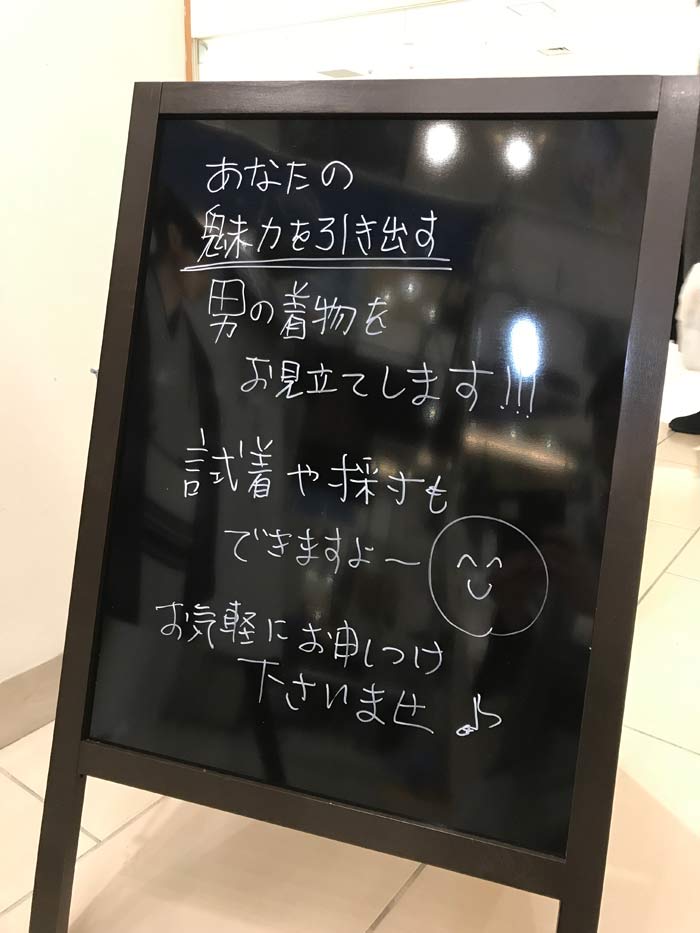 あなたの
魅力を引き出す
男の着物を
お見立てします!!!
試着や採寸も
できますよ～
お気軽にお申しつけ
下さいませ♪